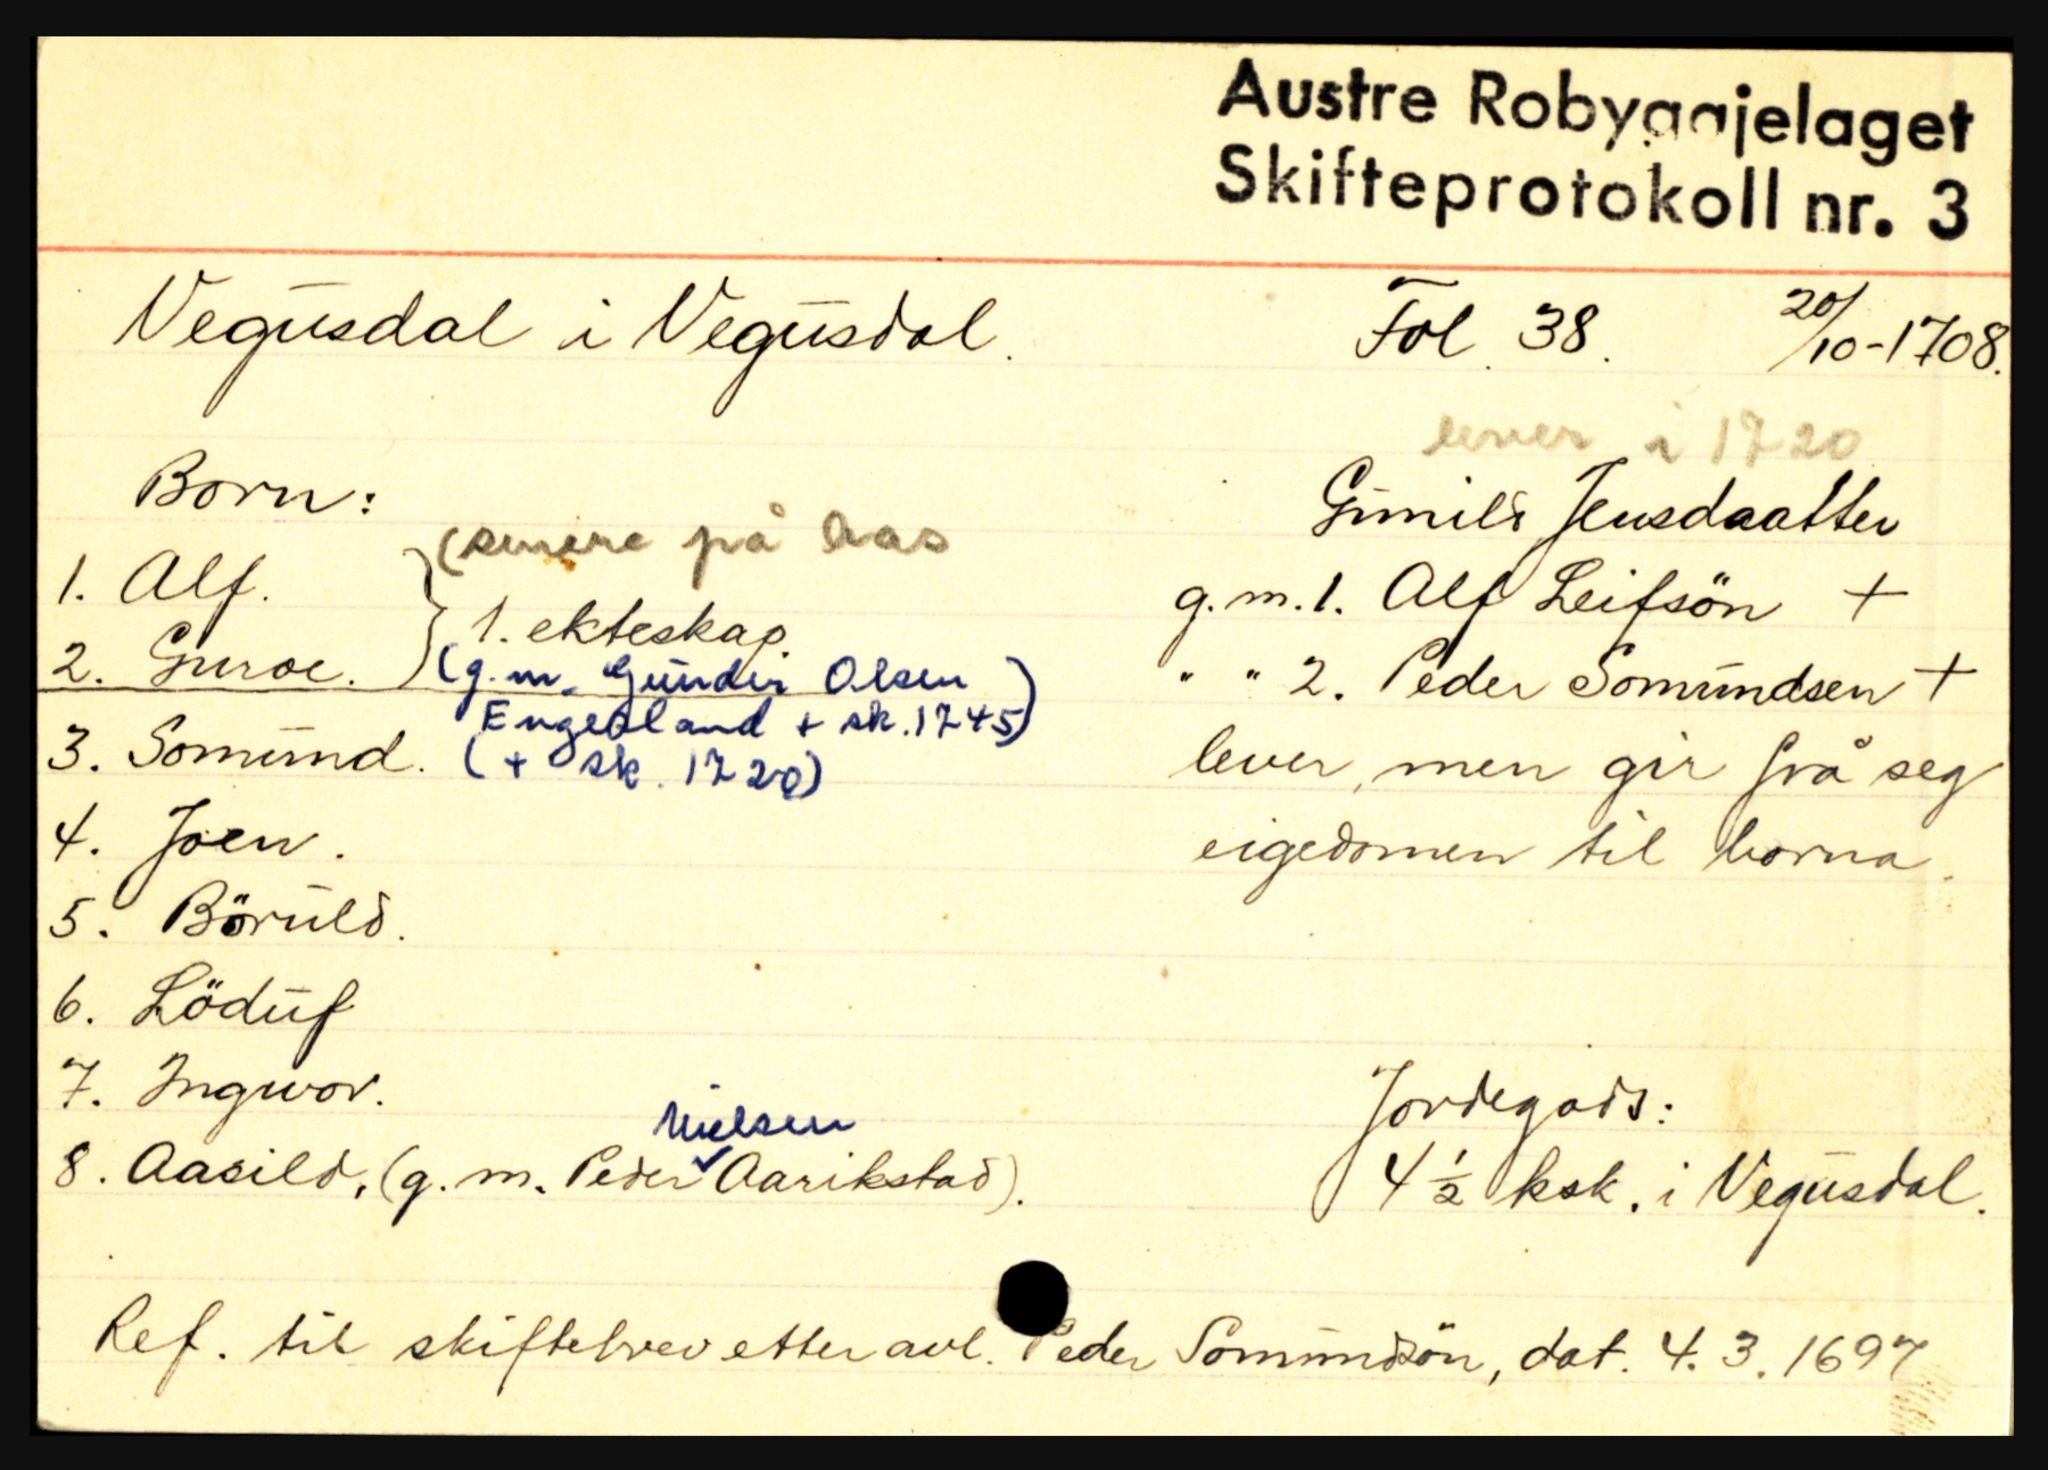 Austre Robyggjelaget
Skifteprotokoll nr. 3
Vegusdal i Vegusdal. Fol. 38. 20/10-1708.
lever i 1720
Born: Gunild Jensdaatter
(senere på Aas
1. Alf. g.m. 1. Alf Leifsön +
1. ekteskap.
2. Guroe. (g.m. Gunder Olsen " " 2. Peder Somundsen +
Engesland + sk. 1745)
3. Somund. (+ sk. 1720) lever, men gir frå seg
4. Joen. eigedomen til borna.
5. Böruld.
6. Löduf
7. Ingwor. Jordegods:
Nielsen
8. Aasild, (g. m. Peder Aarikstad). 4 ½ ksk. i Vegusdal.
Ref. til skiftebrev etter avl. Peder Somundsön, dat. 4. 3. 1697